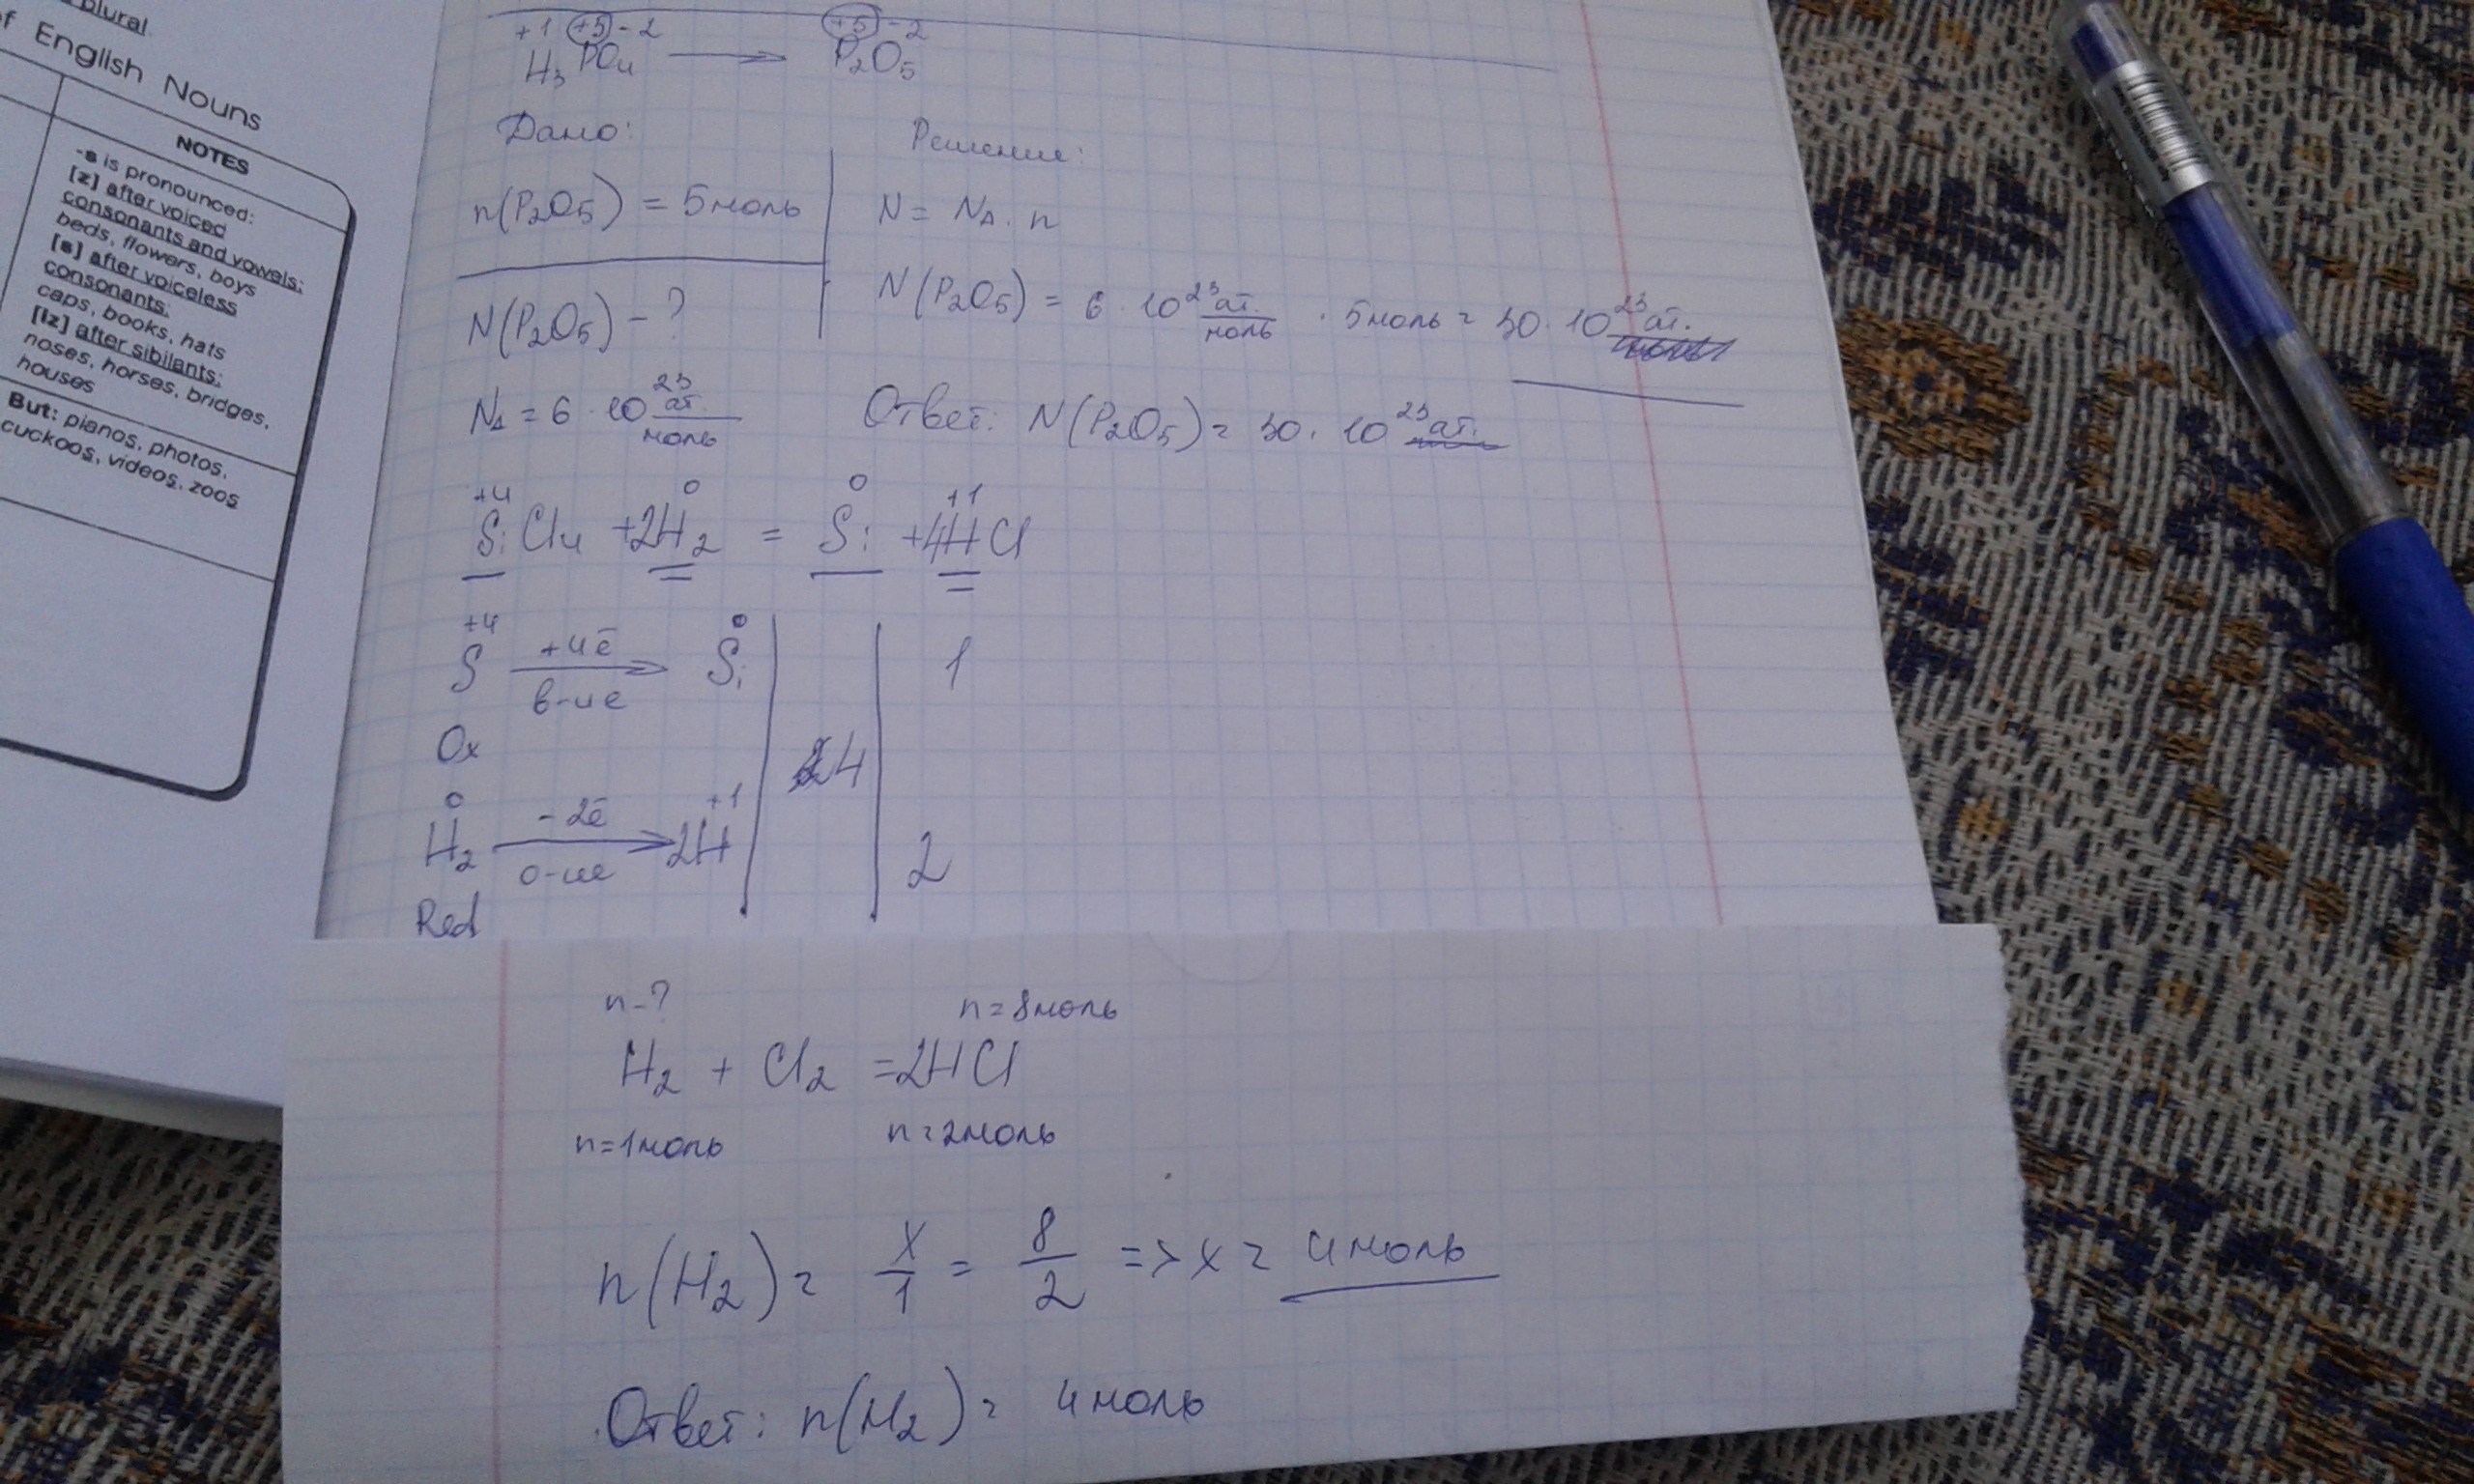 plural
of English Nouns
NOTES
-s is pronounced:
[z] after voiced
consonants and vowels:
beds, flowers, boys
[s] after voiceless
consonants:
caps, books, hats
[iz] after sibilants:
noses, horses, bridges,
houses
But: pianos, photos,
cuckoos, videos, zoos
+1 +5 -2 +5 -2
H₃PO₄ → P₂O₅
Дано: Решение:
n(P₂O₅) = 5 моль N = N_A · n
N(P₂O₅) - ? N(P₂O₅) = 6 · 10²³ ат./моль · 5 моль = 30 · 10²³ ат.
N_A = 6 · 10²³ ат./моль Ответ: N(P₂O₅) = 30 · 10²³ ат.
+4 0 0 +1
SiCl₄ + 2H₂ = Si + 4HCl
+4 +4ē 0
S → Si 1
в-ие
Ox 4
0 -2ē +1
H₂ → 2H 2
о-ие
Red
n - ? n = 8 моль
H₂ + Cl₂ = 2HCl
n = 1 моль n = 2 моль
n(H₂) = x/1 = 8/2 => x = 4 моль
Ответ: n(H₂) = 4 моль